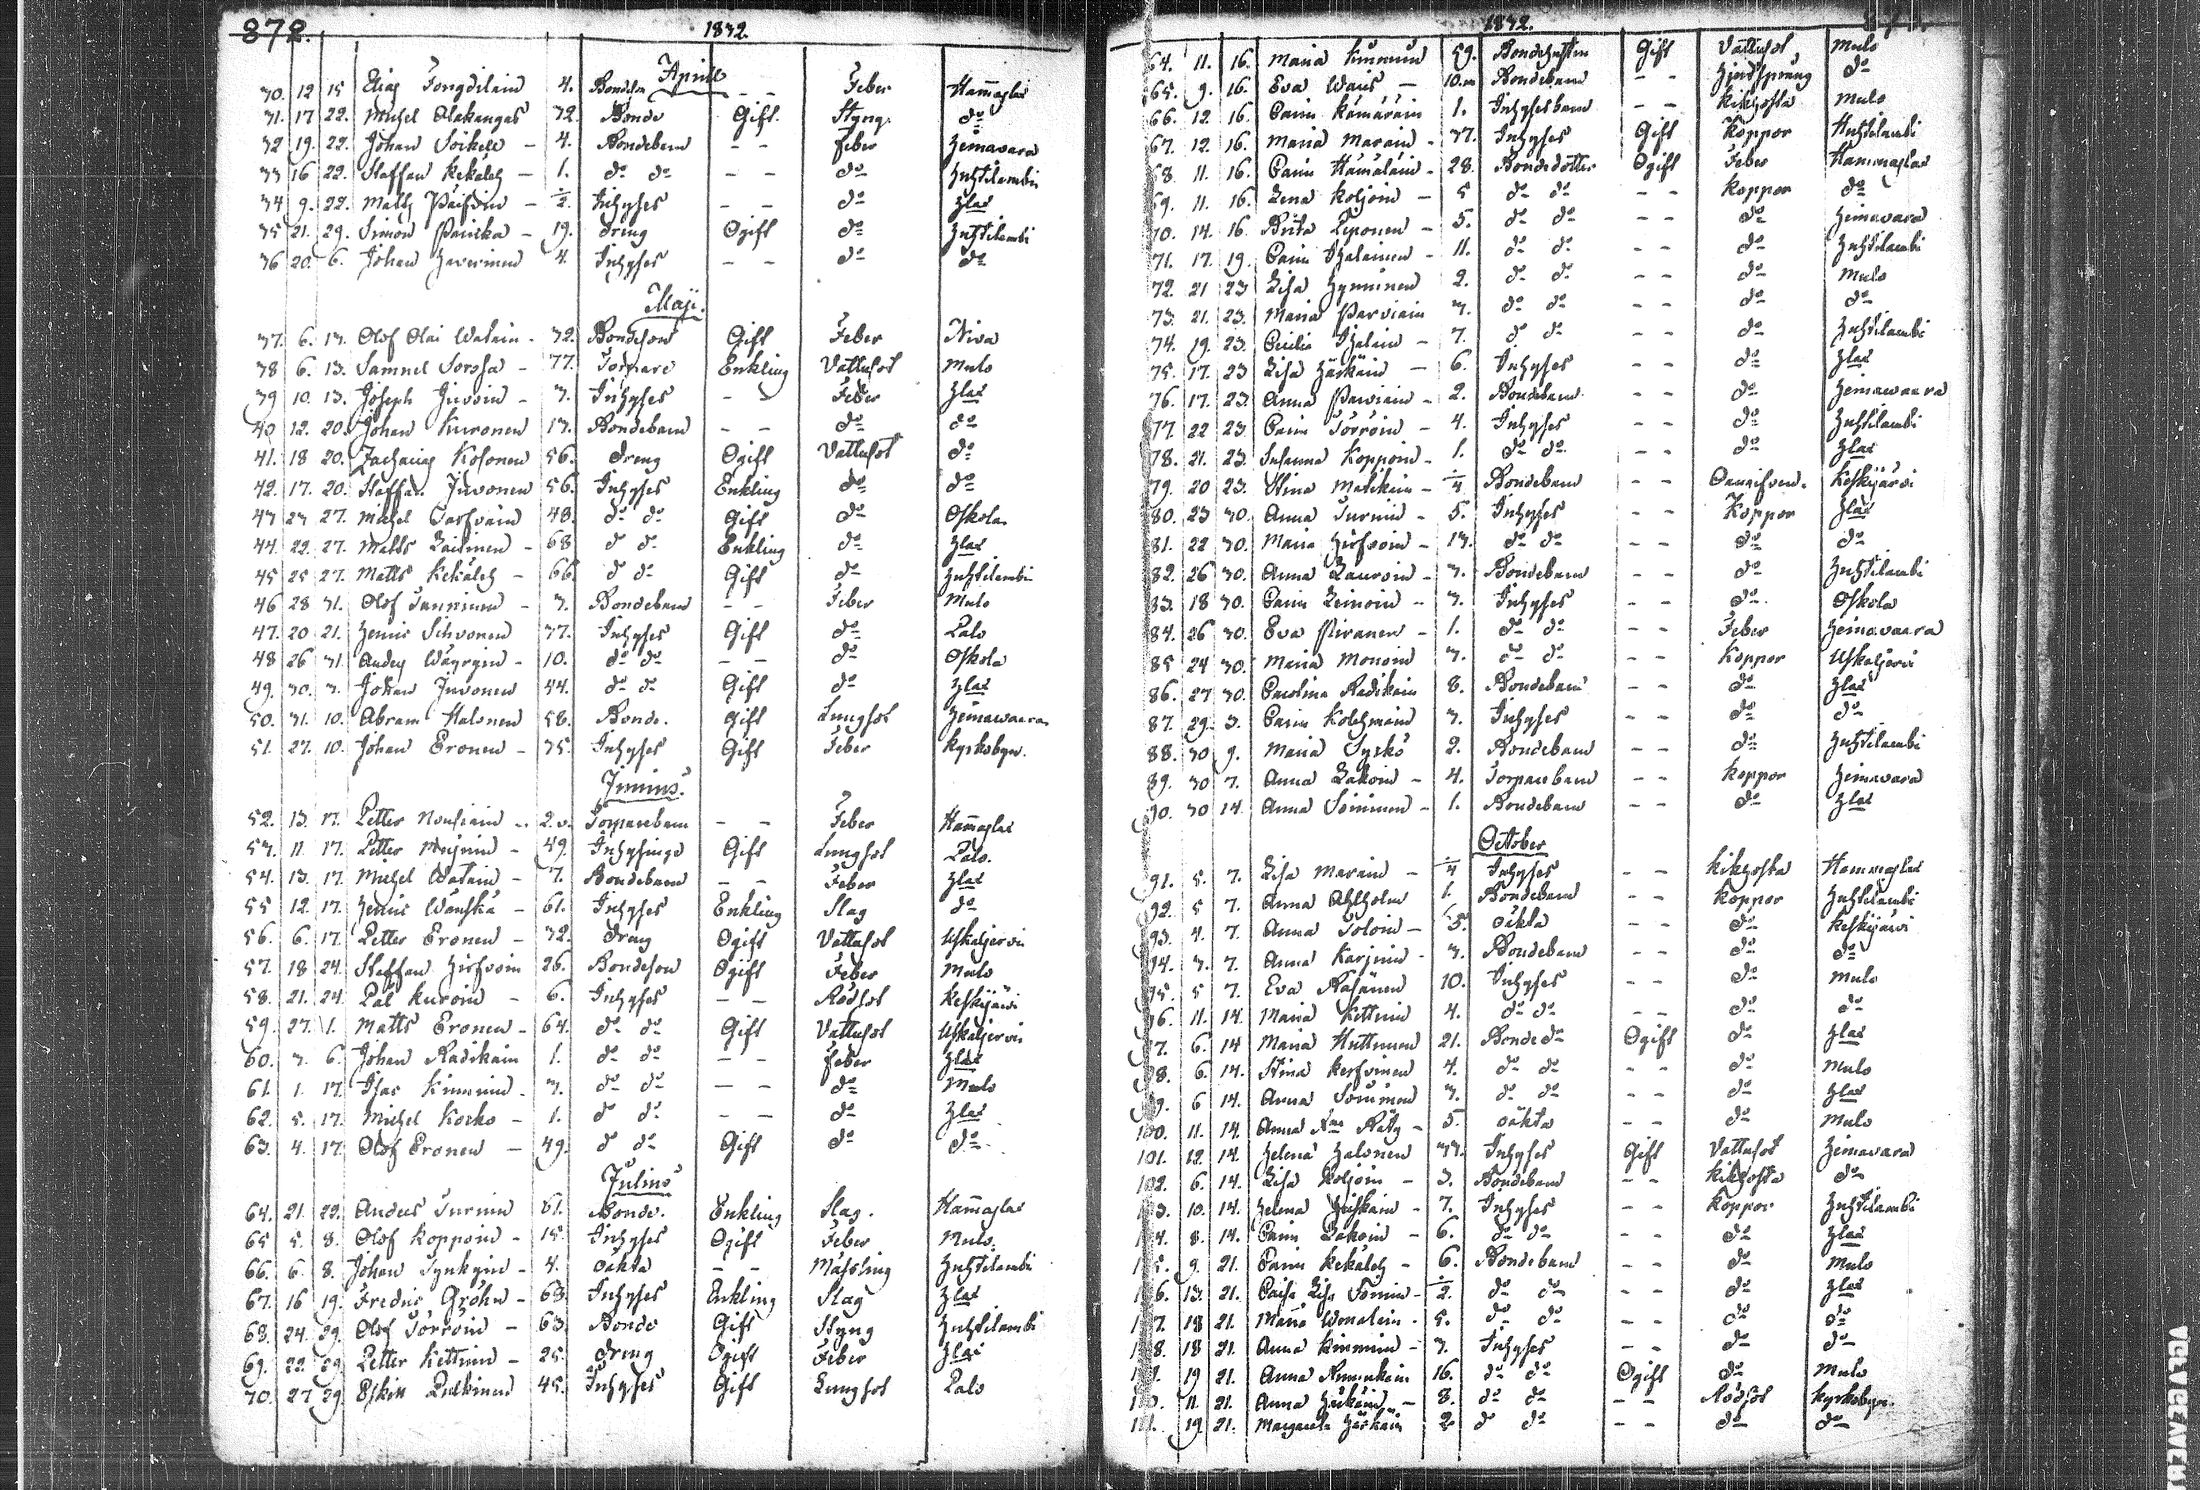 872.
1832.
April
30. 12 15 Elias 4. Feber Hammaslax
31. 17 22. Michel Olakangas 72. Bonde Gift. Styng. do
32 19. 22. Johan 4. Bondebarn - - Feber Heinavara
33 16 22. Staffan Kekäleh 1. do do - - do Huhtilambi
34 9. 22. Matts ½ Inhyses - - do Hlax
35 21. 29. Simon 19. dreng Ogift do Huhtilambi
36 20. 6. Johan 4. Inhyses - - do do
Maji.
37. 6. 13. Olof Olai Watain 32. Bondeson Gift Feber Niva
38 6. 13. Samuel Sorsa 77. Torpare Enkling Vattusot Mulo
39 10. 13. Joseph Juvoin 3. Inhyses - - Feber Hlax
40 12. 20. Johan Kuronen 13. Bondebarn - - do do
41. 18 20. Zacharias Kosonen 56. dreng Ogift Vattusot do
42. 17. 20. Staffan Juvonen 56. Inhyses Enkling do do
43 23 27. Michel 48. do do Gift do Oskola
44. 22. 27. Matts 68 do do Enkling do Hlax
45 25 27. Matts Kekäleh 66 do do Gift do Huhtilambi
46 28 31. Olof 3. Bondebarn - - Feber Mulo
47. 20 21. Henric Sihvonen 37. Inhyses Gift do Palo
48 26 31 Anders Wäyryin 10. do do - - do Oskola
49. 30. 3. Johan Juvonen 44. do do Gift do Hlax
50. 31. 10. Abram Halonen 58. Bonde. Gift Lungsot Heinawaara
51. 27. 10. Johan Eronen 35. Inhyses Gift Feber Kyrkobyn.
Junius.
52. 13. 17. Petter Nousiain 2. Torparebarn - - Feber Hammaslax
53. 11 17. Petter 49. Inhysinge Gift Lungsot Palo.
54. 13. 17 Michel Watain 7. Bondebarn - - Feber Hlax
55 12. 17. Henric Wänskä 61. Inhyses Enkling Slag do
56. 6. 17. Petter Eronen 32. dreng Ogift Vattusot Uskaljervi
57. 18 24. Staffan Hirfvoin 26. Bondeson Ogift Feber Mulo
58. 21. 24. Pål Kuroin 6. Inhyses - - Rödsot Keskijärvi
59. 27. 1. Matts Eronen 64. do do Gift Vattusot Uskaljervi
60. 3. 6. Johan Radikain 1. do do - - Feber Hlax
61. 1. 17. Isac Kinnuin 3. do do - - do Mulo
62. 5. 17. Michel Korko 1. do do - - do Hlax
63. 4. 17. Olof Eronen 49. do do Gift do do
Julius
64. 21. 22. Anders Turuin 61. Bonde. Enkling Slag. Hammaslax
65 5. 8. Olof Koppoin 15. Inhyses Ogift Feber Mulo.
66. 6. 8. Johan Tynkyin 4. oäkta - - Mässling Huhtilambi
67. 16 19. Fredric Gröhn 68. Inhyses Enkling Slag Hlax
68. 24. 29. Olof Törröin 63. Bonde Gift Styng Huhtilambi
69. 22. 29. Petter Kettuin 25. dreng Ogift Feber Hlax
70. 27 29. Eskil Pulkinen 45. Inhyses Gift Lungsot Palo
1832.
64. 11. 16. Maria Kinnuin 59. Bondehustru Gift Vattusot Mulo
65. 9. 16. Eva 10.m Bondebarn - - Hjertsprång do
66. 12 16. Carin Kämäräin 1. Inhysesbarn - - Kikhosta Mulo
67. 12 16. Maria Marain 37. Inhyses Gift Koppor Huhtilambi
68. 11. 16. Carin Hämäläin 28. Bondedotter Ogift Feber Hammaslax
69. 11 16. Lena Koljoin 5 do do - - Koppor do
70. 14. 16 Brita Leponen 5. do do - - do Heinavara
71. 17. 19. Carin Ihalainen 11. do do - - do Huhtilambi
72. 21 23 Lisa Hynninen 2. do do - - do Mulo
73. 21. 23. Maria Parviain 3. do do - - do do
74. 19. 23. Cecilia Ihalain 7. do do - - do Huhtilambi
75. 17. 23 Lisa Härkäin 6. Inhyses - - do Hlax
76. 17. 23. Anna Parviain 2. Bondebarn - - do Heinawaara
77. 22 23. Carin Törröin 4. Inhyses - - do Huhtilambi
78. 21. 23. Susanna Koppoin 1. do do - - do Hlax
79. 20 23. Stina Matikain ¼ Bondebarn - - Oangifven. Keskijärvi
80. 23 30. Anna Turuin 5. Inhyses - - Koppor Hlax
81. 22 30. Maria Hirfvoin 13. do do - - do do
82. 26 30. Anna Lauroin 3. Bondebarn - - do Huhtilambi
83. 18 30. Carin Leinoin 3. Inhyses - - do Oskola
84. 26 30. Eva Piranen 1. do do - - Feber Heinavaara
85 24 30. Maria Monoin 3. do do - - Koppor Uskaljervi
86. 27 30. Carolina Radikain 8. Bondebarn - - do Hlax
87. 29. 3. Carin Kolehmain 3. Inhyses - - do do
88. 30 9. Maria Syrkö 2. Bondebarn - - do Huhtilambi
89. 30 7. Anna Lakoin 4. Torparebarn - - Koppor Heinavara
90. 30 14. Anna Soininen 1. Bondebarn - - do Hlax
October
91. 5. 7. Lisa Marain ¼ Inhyses - - Kikhosta Hammaslax
92. 5 7. Anna Ahlholm 1. Bondebarn - - Koppor Huhtilambi
93. 4. 7. Anna Toloin 5. oäkta - - do Keskijärvi
94. 3. 7. Anna Karjuin 3. Bondebarn - - do do
95. 5 7. Eva Räsänen 10. Inhyses - - do Mulo
96. 11. 14. Maria Kettuin 4. do do - - do do
97. 6. 14 Maria Huttunen 21. Bonde do Ogift do Hlax
98. 6. 14. Stina Kerfvinen 4. do do - - do Mulo
99. 6 14. Anna 3. do do - - do Hlax
100. 11. 14. Anna Räty 5. oäkta - - do Mulo
101. 12 14. Helena Halonen 37. Inhyses Gift Vattusot Heinavara
102. 6. 14. Lisa Koljoin 3. Bondebarn - - Kikhosta do
103. 10. 14. Helena 7. Inhyses - - Koppor Huhtilambi
104. 8. 14. Carin Lakoin 6. do do - - do Hlax
105. 9. 21. Carin Kekäleh 6. Bondebarn - - do Mulo
106. 13. 21. Caisa Lisa ½ do do - - do Hlax
107. 18 21. Maria 5. do do - - do do
108. 18 21. Anna Kinnuin 3. Inhyses - - do do
109. 19 21. Anna 16. do do Ogift do Mulo
110. 11. 21. Anna Härkäin 8. do do - - Rödsot Kyrkobyn.
111. 19. 21. Margareta Härkäin 2 do do - - do do